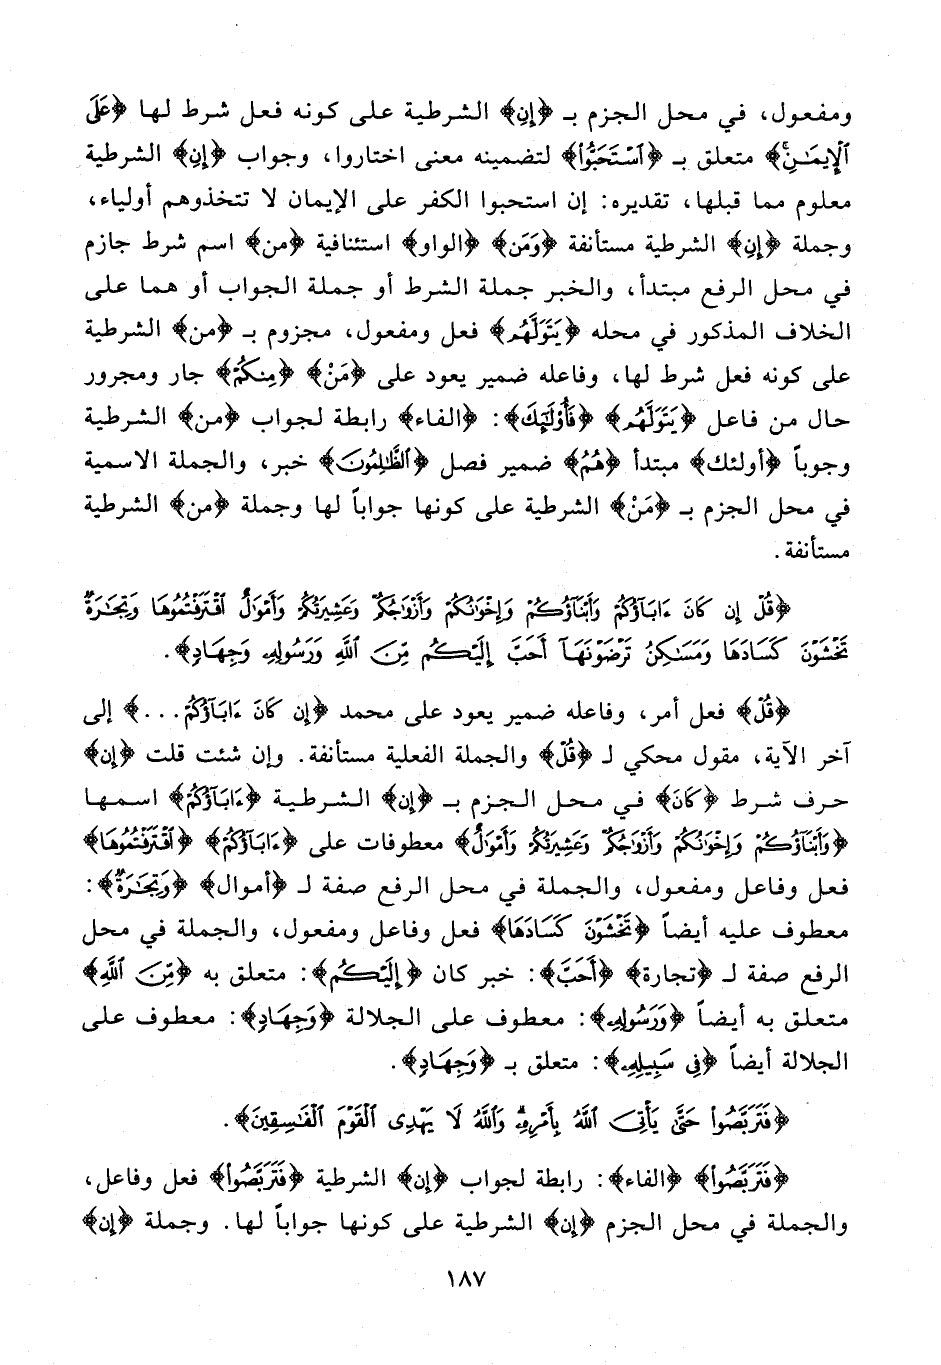 ومفعول، في محل الجزم بـ ﴿إِنِ﴾ الشرطية على كونه فعل شرط لها ﴿عَلَى
ٱلْإِيمَٰنِۚ﴾ متعلق بـ ﴿ٱسْتَحَبُّوا۟﴾ لتضمينه معنى اختاروا، وجواب ﴿إن﴾ الشرطية
معلوم مما قبلها، تقديره: إن استحبوا الكفر على الإيمان لا تتخذوهم أولياء،
وجملة ﴿إِنِ﴾ الشرطية مستأنفة ﴿وَمَن﴾ ﴿الواو﴾ استئنافية ﴿من﴾ اسم شرط جازم
في محل الرفع مبتدأ، والخبر جملة الشرط أو جملة الجواب أو هما على
الخلاف المذكور في محله ﴿يَتَوَلَّهُم﴾ فعل ومفعول، مجزوم بـ ﴿من﴾ الشرطية
على كونه فعل شرط لها، وفاعله ضمير يعود على ﴿مَنْ﴾ ﴿مِنكُمْ﴾ جار ومجرور
حال من فاعل ﴿يَتَوَلَّهُم﴾ ﴿فَأُو۟لَٰٓئِكَ﴾: ﴿الفاء﴾ رابطة لجواب ﴿من﴾ الشرطية
وجوباً ﴿أولئك﴾ مبتدأ ﴿هُمُ﴾ ضمير فصل ﴿ٱلظَّٰلِمُونَ﴾ خبر، والجملة الاسمية
في محل الجزم بـ ﴿مَنْ﴾ الشرطية على كونها جواباً لها وجملة ﴿من﴾ الشرطية
مستأنفة.
﴿قُلْ إِن كَانَ ءَابَآؤُكُمْ وَأَبْنَآؤُكُمْ وَإِخْوَٰنُكُمْ وَأَزْوَٰجُكُمْ وَعَشِيرَتُكُمْ وَأَمْوَٰلٌ ٱقْتَرَفْتُمُوهَا وَتِجَٰرَةٌ
تَخْشَوْنَ كَسَادَهَا وَمَسَٰكِنُ تَرْضَوْنَهَآ أَحَبَّ إِلَيْكُم مِّنَ ٱللَّهِ وَرَسُولِهِۦ وَجِهَادٍ﴾.
﴿قُلْ﴾ فعل أمر، وفاعله ضمير يعود على محمد ﴿إِن كَانَ ءَابَآؤُكُمْ...﴾ إلى
آخر الآية، مقول محكي لـ ﴿قُلْ﴾ والجملة الفعلية مستأنفة. وإن شئت قلت ﴿إن﴾
حرف شرط ﴿كَانَ﴾ في محل الجزم بـ ﴿إن﴾ الشرطية ﴿ءَابَآؤُكُمْ﴾ اسمها
﴿وَأَبْنَآؤُكُمْ وَإِخْوَٰنُكُمْ وَأَزْوَٰجُكُمْ وَعَشِيرَتُكُمْ وَأَمْوَٰلٌ﴾ معطوفات على ﴿ءَابَآؤُكُمْ﴾ ﴿ٱقْتَرَفْتُمُوهَا﴾
فعل وفاعل ومفعول، والجملة في محل الرفع صفة لـ ﴿أموال﴾ ﴿وَتِجَٰرَةٌ﴾:
معطوف عليه أيضاً ﴿تَخْشَوْنَ كَسَادَهَا﴾ فعل وفاعل ومفعول، والجملة في محل
الرفع صفة لـ ﴿تجارة﴾ ﴿أَحَبَّ﴾: خبر كان ﴿إِلَيْكُم﴾: متعلق به ﴿مِّنَ ٱللَّهِ﴾
متعلق به أيضاً ﴿وَرَسُولِهِۦ﴾: معطوف على الجلالة ﴿وَجِهَادٍ﴾: معطوف على
الجلالة أيضاً ﴿فِى سَبِيلِهِۦ﴾: متعلق بـ ﴿وَجِهَادٍ﴾.
﴿فَتَرَبَّصُوا۟ حَتَّىٰ يَأْتِىَ ٱللَّهُ بِأَمْرِهِۦۗ وَٱللَّهُ لَا يَهْدِى ٱلْقَوْمَ ٱلْفَٰسِقِينَ﴾.
﴿فَتَرَبَّصُوا۟﴾ ﴿الفاء﴾: رابطة لجواب ﴿إن﴾ الشرطية ﴿فَتَرَبَّصُوا۟﴾ فعل وفاعل،
والجملة في محل الجزم ﴿إن﴾ الشرطية على كونها جواباً لها. وجملة ﴿إن﴾
١٨٧